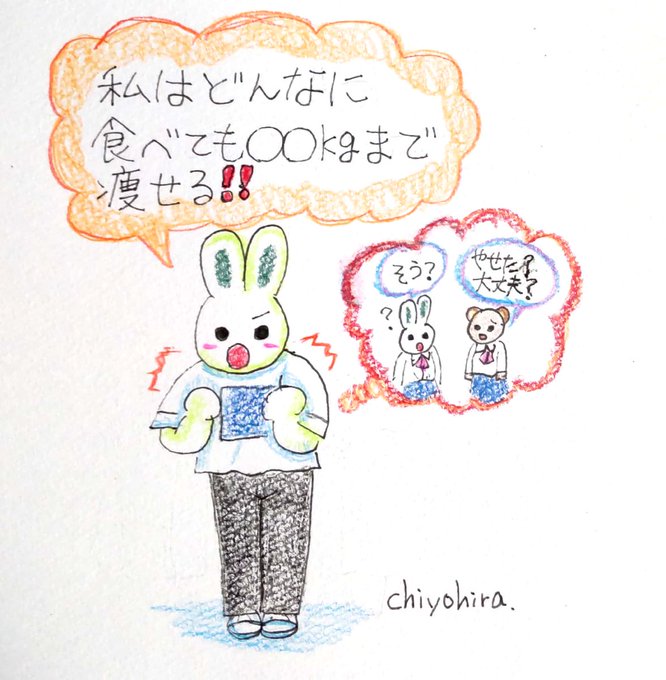 私はどんなに
食べても〇〇kgまで
痩せる!!
そう?
やせた?
大丈夫?
?
chiyohira.